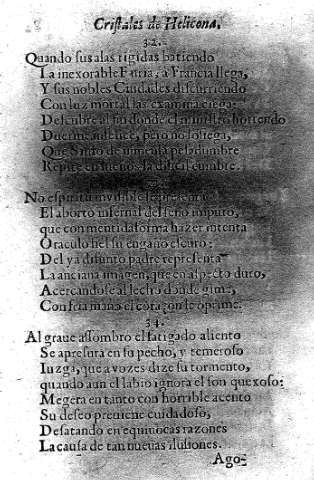 Cristales de Helicona.
32.
Quando sus alas rigidas batiendo
La inexorable Furia, à Francia llega,
Y sus nobles Ciudades discurriendo
Con luz mortal las examina ciega:
Descubre al fin donde el monstro horrendo
Duerme pero no sossiega,
Que de pesadumbre
Repite en la dificil cumbre.
No espiritu invisible representa
El aborto infernal del seno impuro,
que con mentida forma hazer intenta
Oraculo fiel su engaño escuro:
Del ya difunto padre representa
La anciana imagen, que en aspecto duro,
Acercandose al lecho donde gime,
Con fria mano el coraçon le oprime.
34.
Al graue assombro el fatigado aliento
Se apresura en su pecho, y temeroso
Iuzga, que a vozes dize su tormento,
quando aun el labio ignora el son quexoso:
Megera en tanto con horrible acento
Su deseo preuiene cuidadoso,
Desatando en equiuocas razones
La causa de tan nueuas ilusiones.
Ago-